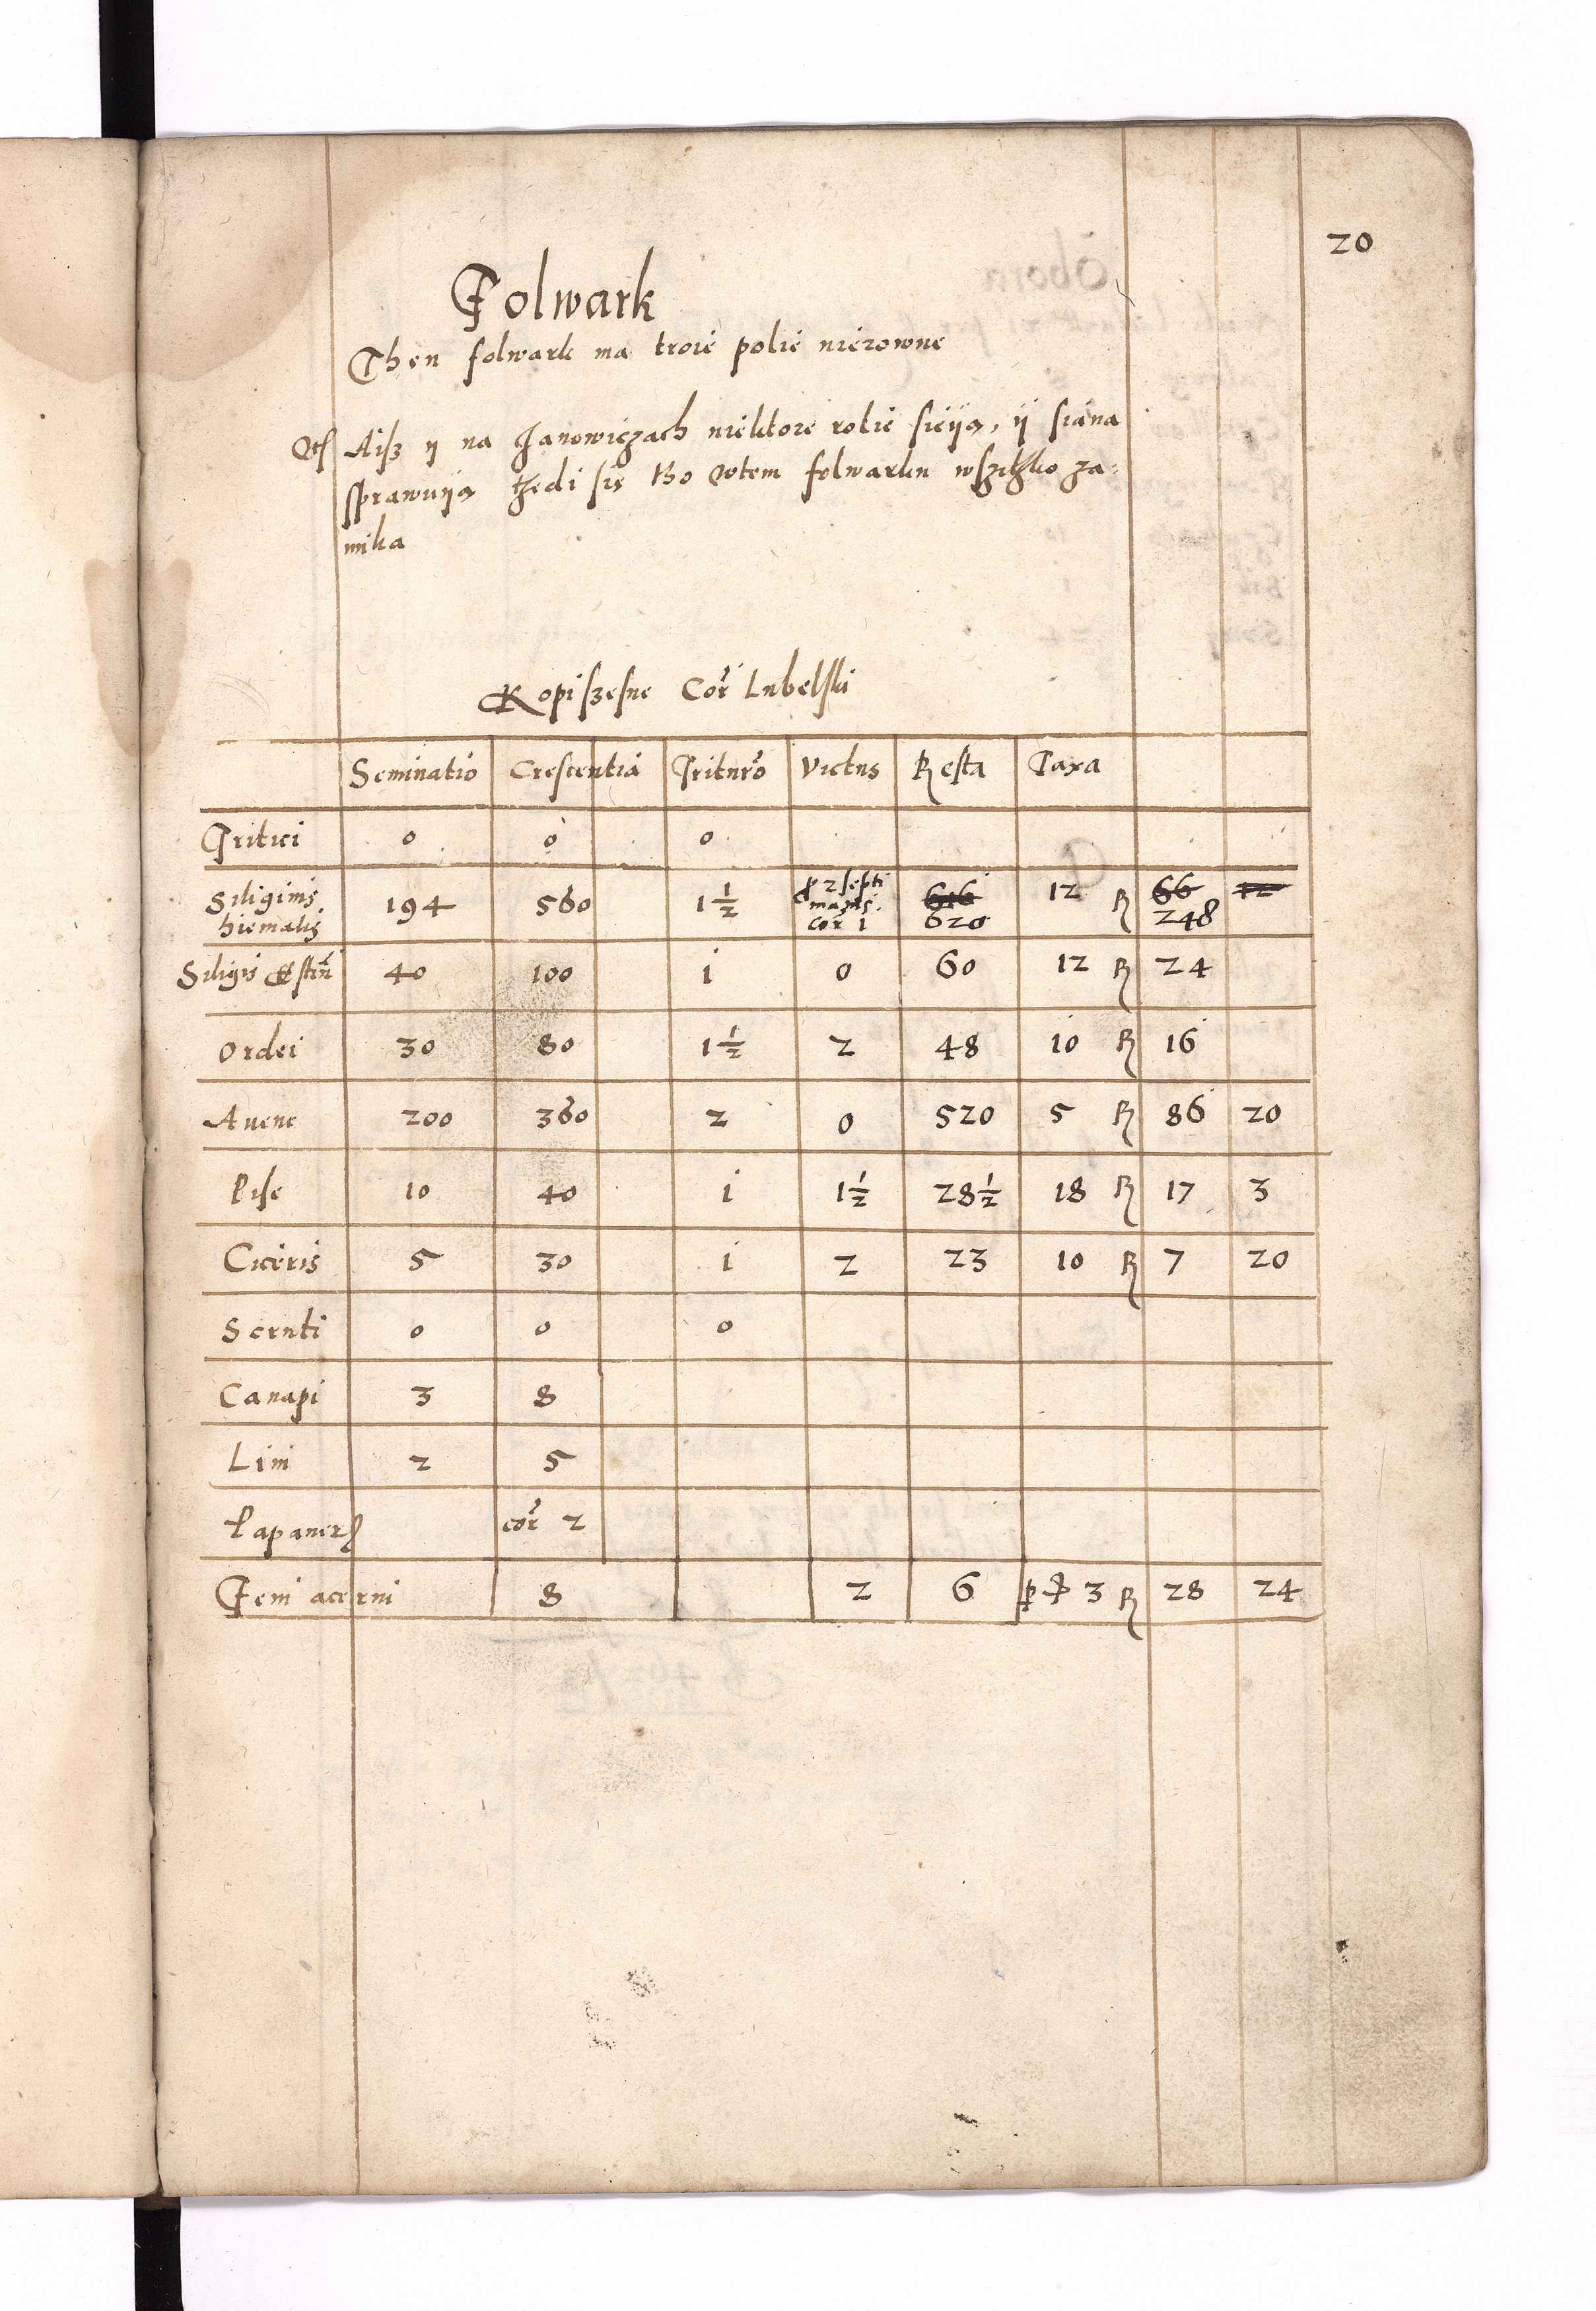 20
Folwark
Then folwark ma troie polie nierowne
Aisz y na Janowiczach niektore rolie sieiją, ij siana
sprawuiją thedi się tho wtem folwarku wszythko za-
mika
Kopiszesne Cor Lubelski
Seminatio Crescentia Trituro Victus Resta Taxa
Tritici 0 0 0
Siliginis hiemalis 194 560 1½ cor 1 646 620 12 R 66 248 12
Siligis Estiu 40 100 1 0 60 12 R 24
Ordei 30 80 1½ 2 48 10 R 16
Auene 200 360 2 0 520 5 R 86 20
Pise 10 40 1 1½ 28½ 18 R 17 3
Ciceris 5 30 1 2 23 10 R 7 20
Seruti 0 0 0
Canapi 3 8
Lini 2 5
Papauer cor 2
Feni acerui 8 2 6 3 R 28 24